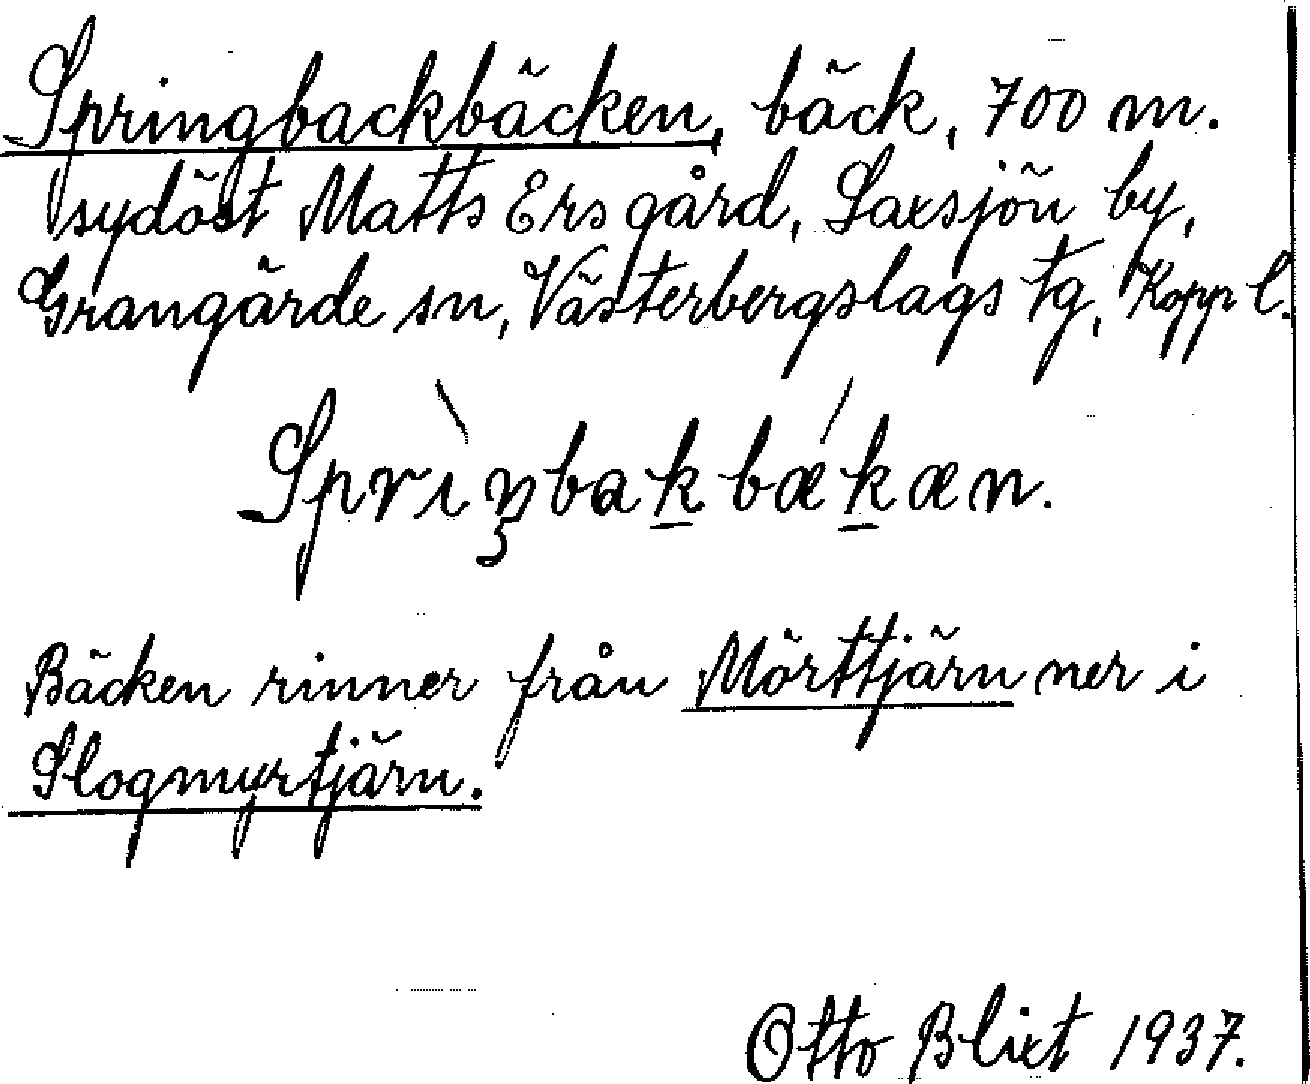 Springbackbäcken, bäck, 700 m.
sydöst Matts Ers gård, Saxsjön by,
Grangärde sn, Västerbergslags tg, Kopp l.
Sprìŋbak̲bǽk̲æn.
Bäcken rinner från Mörttjärn ner i
Slogmyrtjärn.
Otto Blixt 1937.